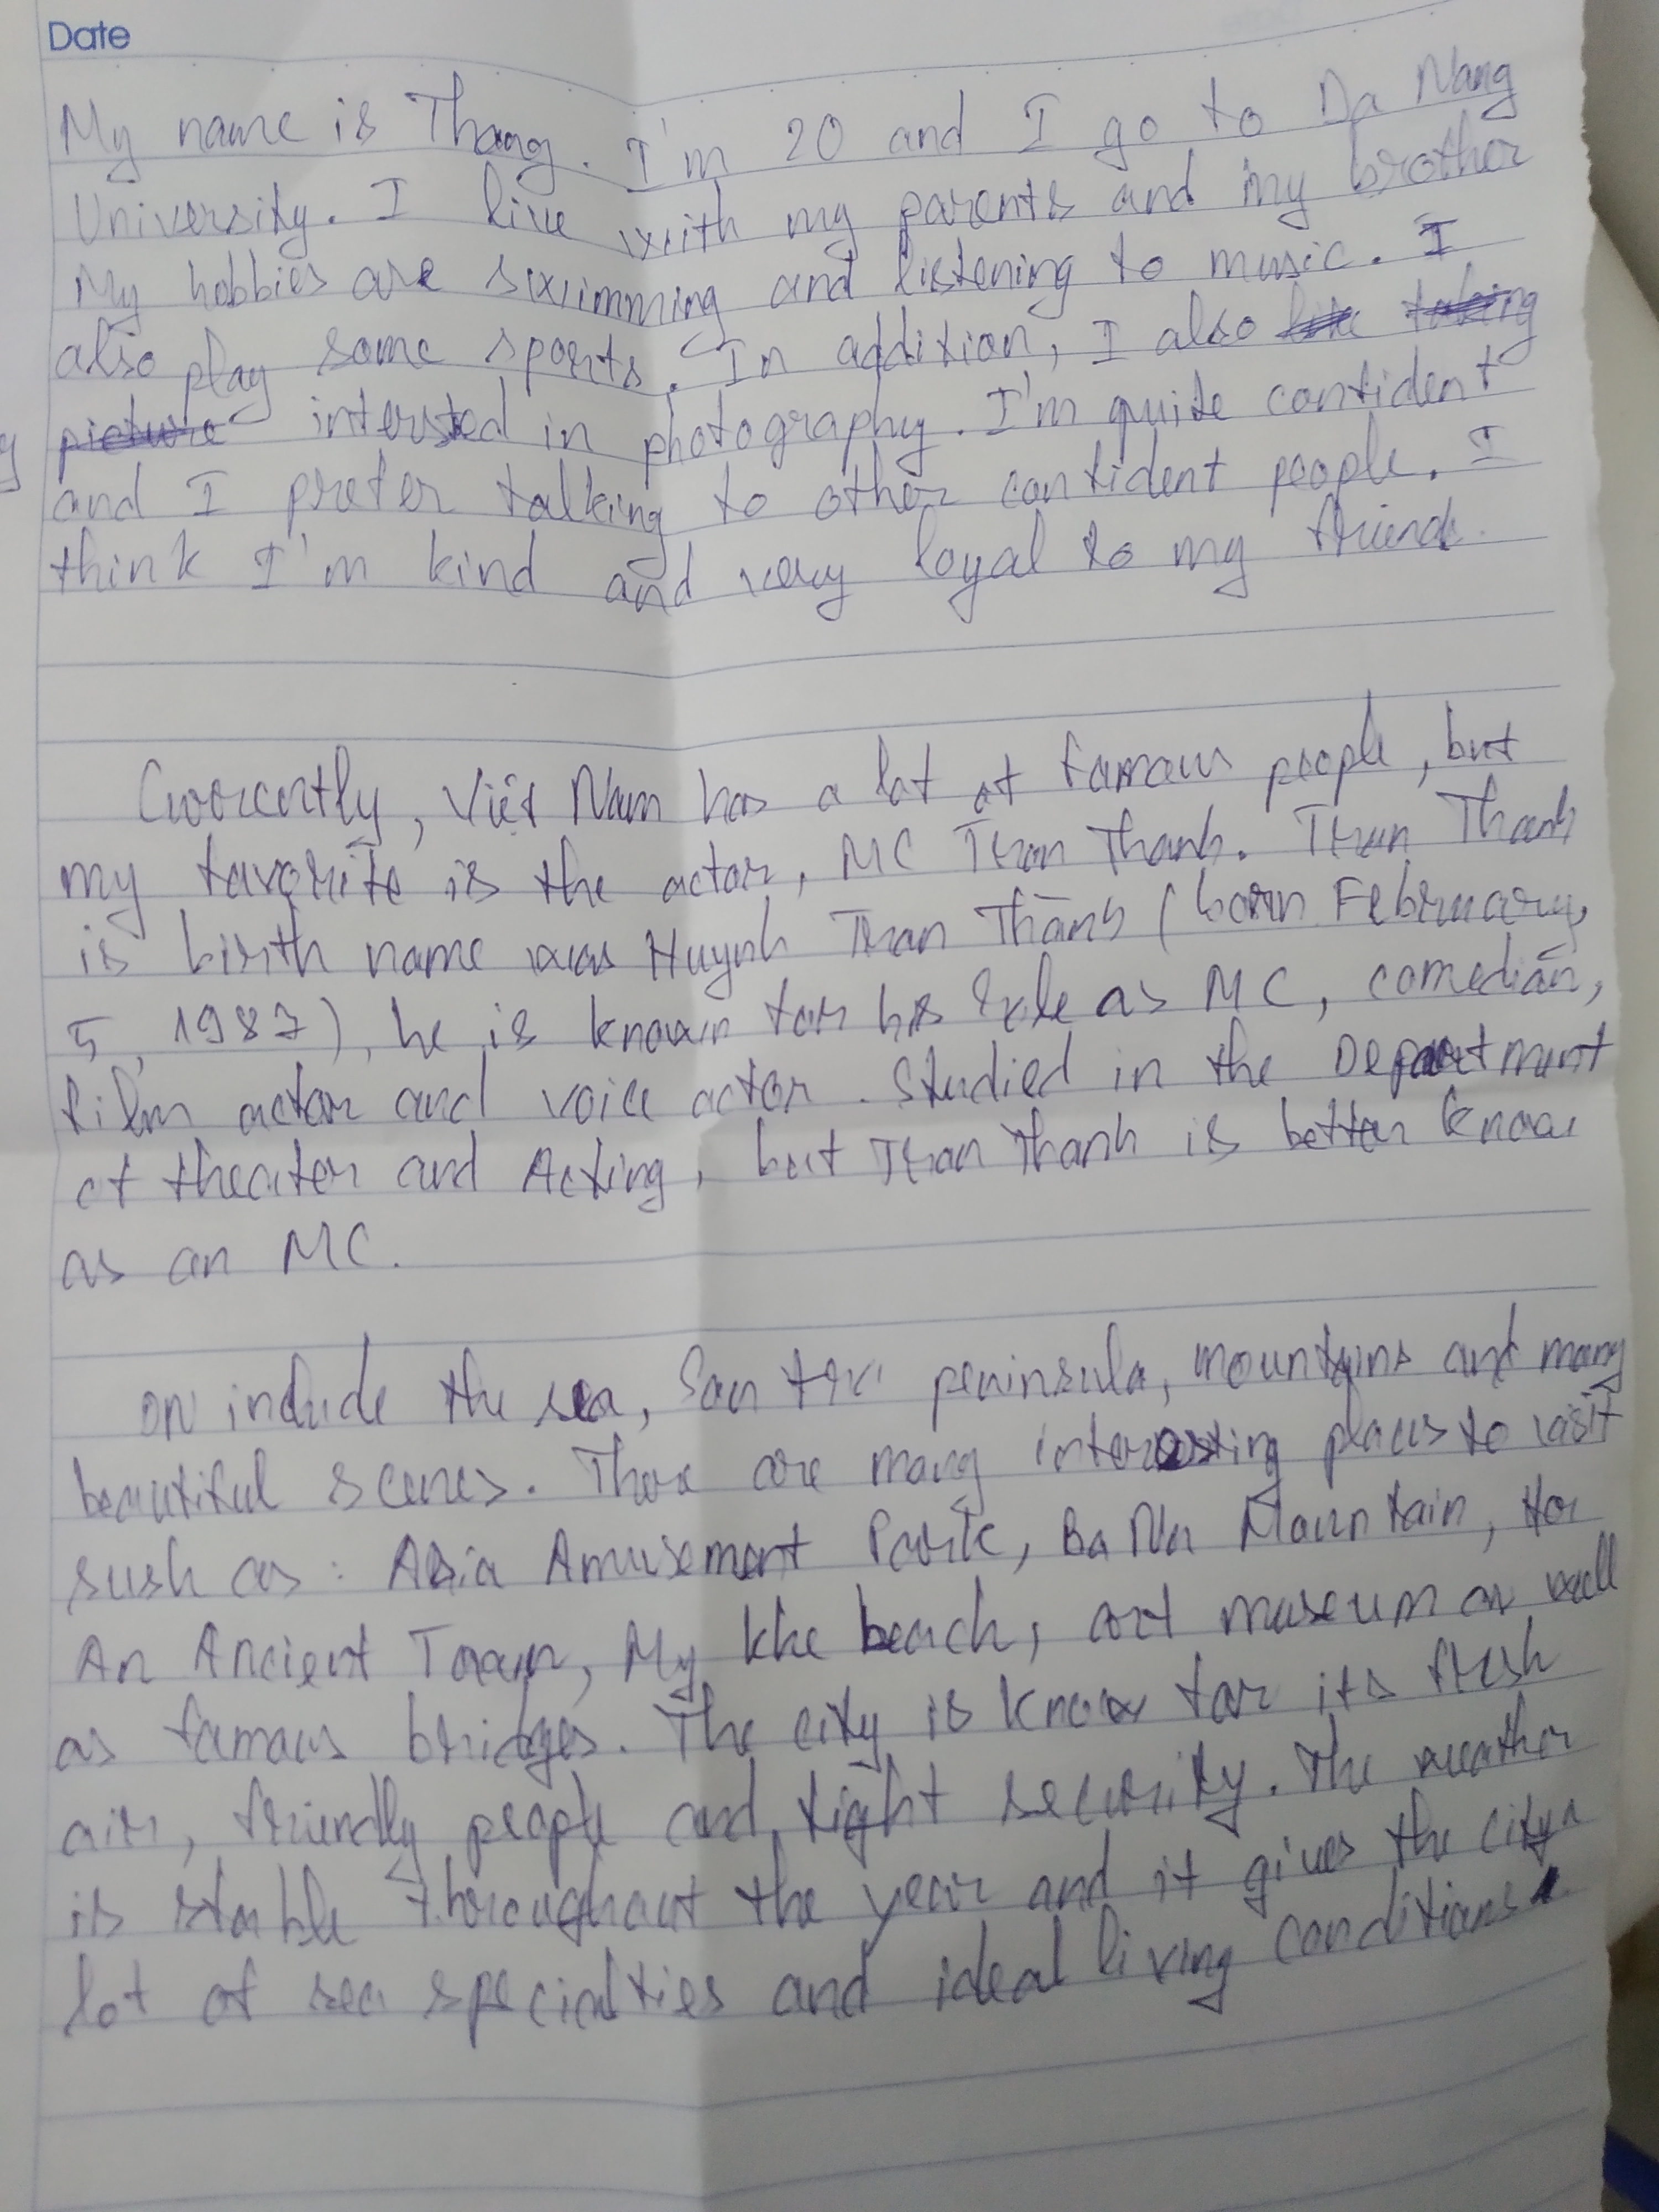 Date
My name is Thang. I'm 20 and I go to Da Nang
University. I live with my parents and my brother
My hobbies are swimming and listening to music. I
also play some sports. In addition, I also like taking
picture intersted in photography. I'm quite confident
and I prefer talking to other confident people. I
think I'm kind and very loyal to my friend.
Currently, Việt Nam has a lot of famous people, but
my favorite is the actor, MC Tran Thanh. Tran Thanh
is birth name was Huynh Tran Thanh (born February,
5, 1987), he is known for his role as MC, comedian,
film actor and voice actor. Studied in the Department
of theater and Acting, but Tran Thanh is better know
as an MC.
include the sea, Son tra peninsula, mountains and many
beautiful scenes. There are many interesting places to visit
sush as: Asia Amusement Park, Ba Na Mountain, Hoi
An Ancient Town, My Khe beach, art museum as well
as famous bridges. The city is know for its fresh
air, friendly people and tight security. The weather
is stable throughout the year and it gives the city a
lot of sea specialties and ideal living conditions.